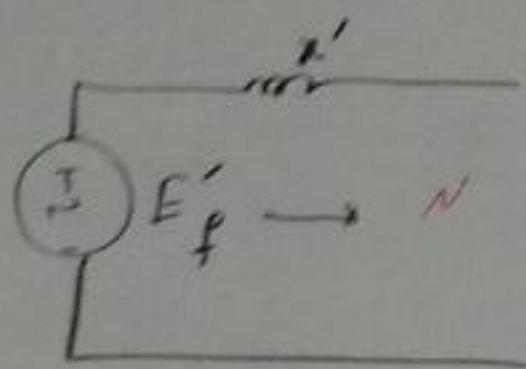 x'
E'f → N